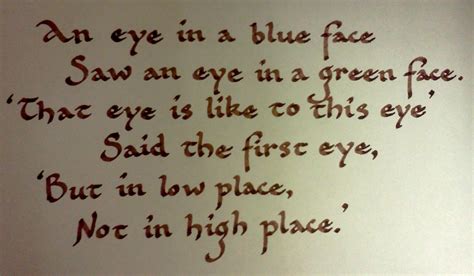 An eye in a blue face
Saw an eye in a green face.
'That eye is like to this eye'
Said the first eye,
'But in low place,
Not in high place.'